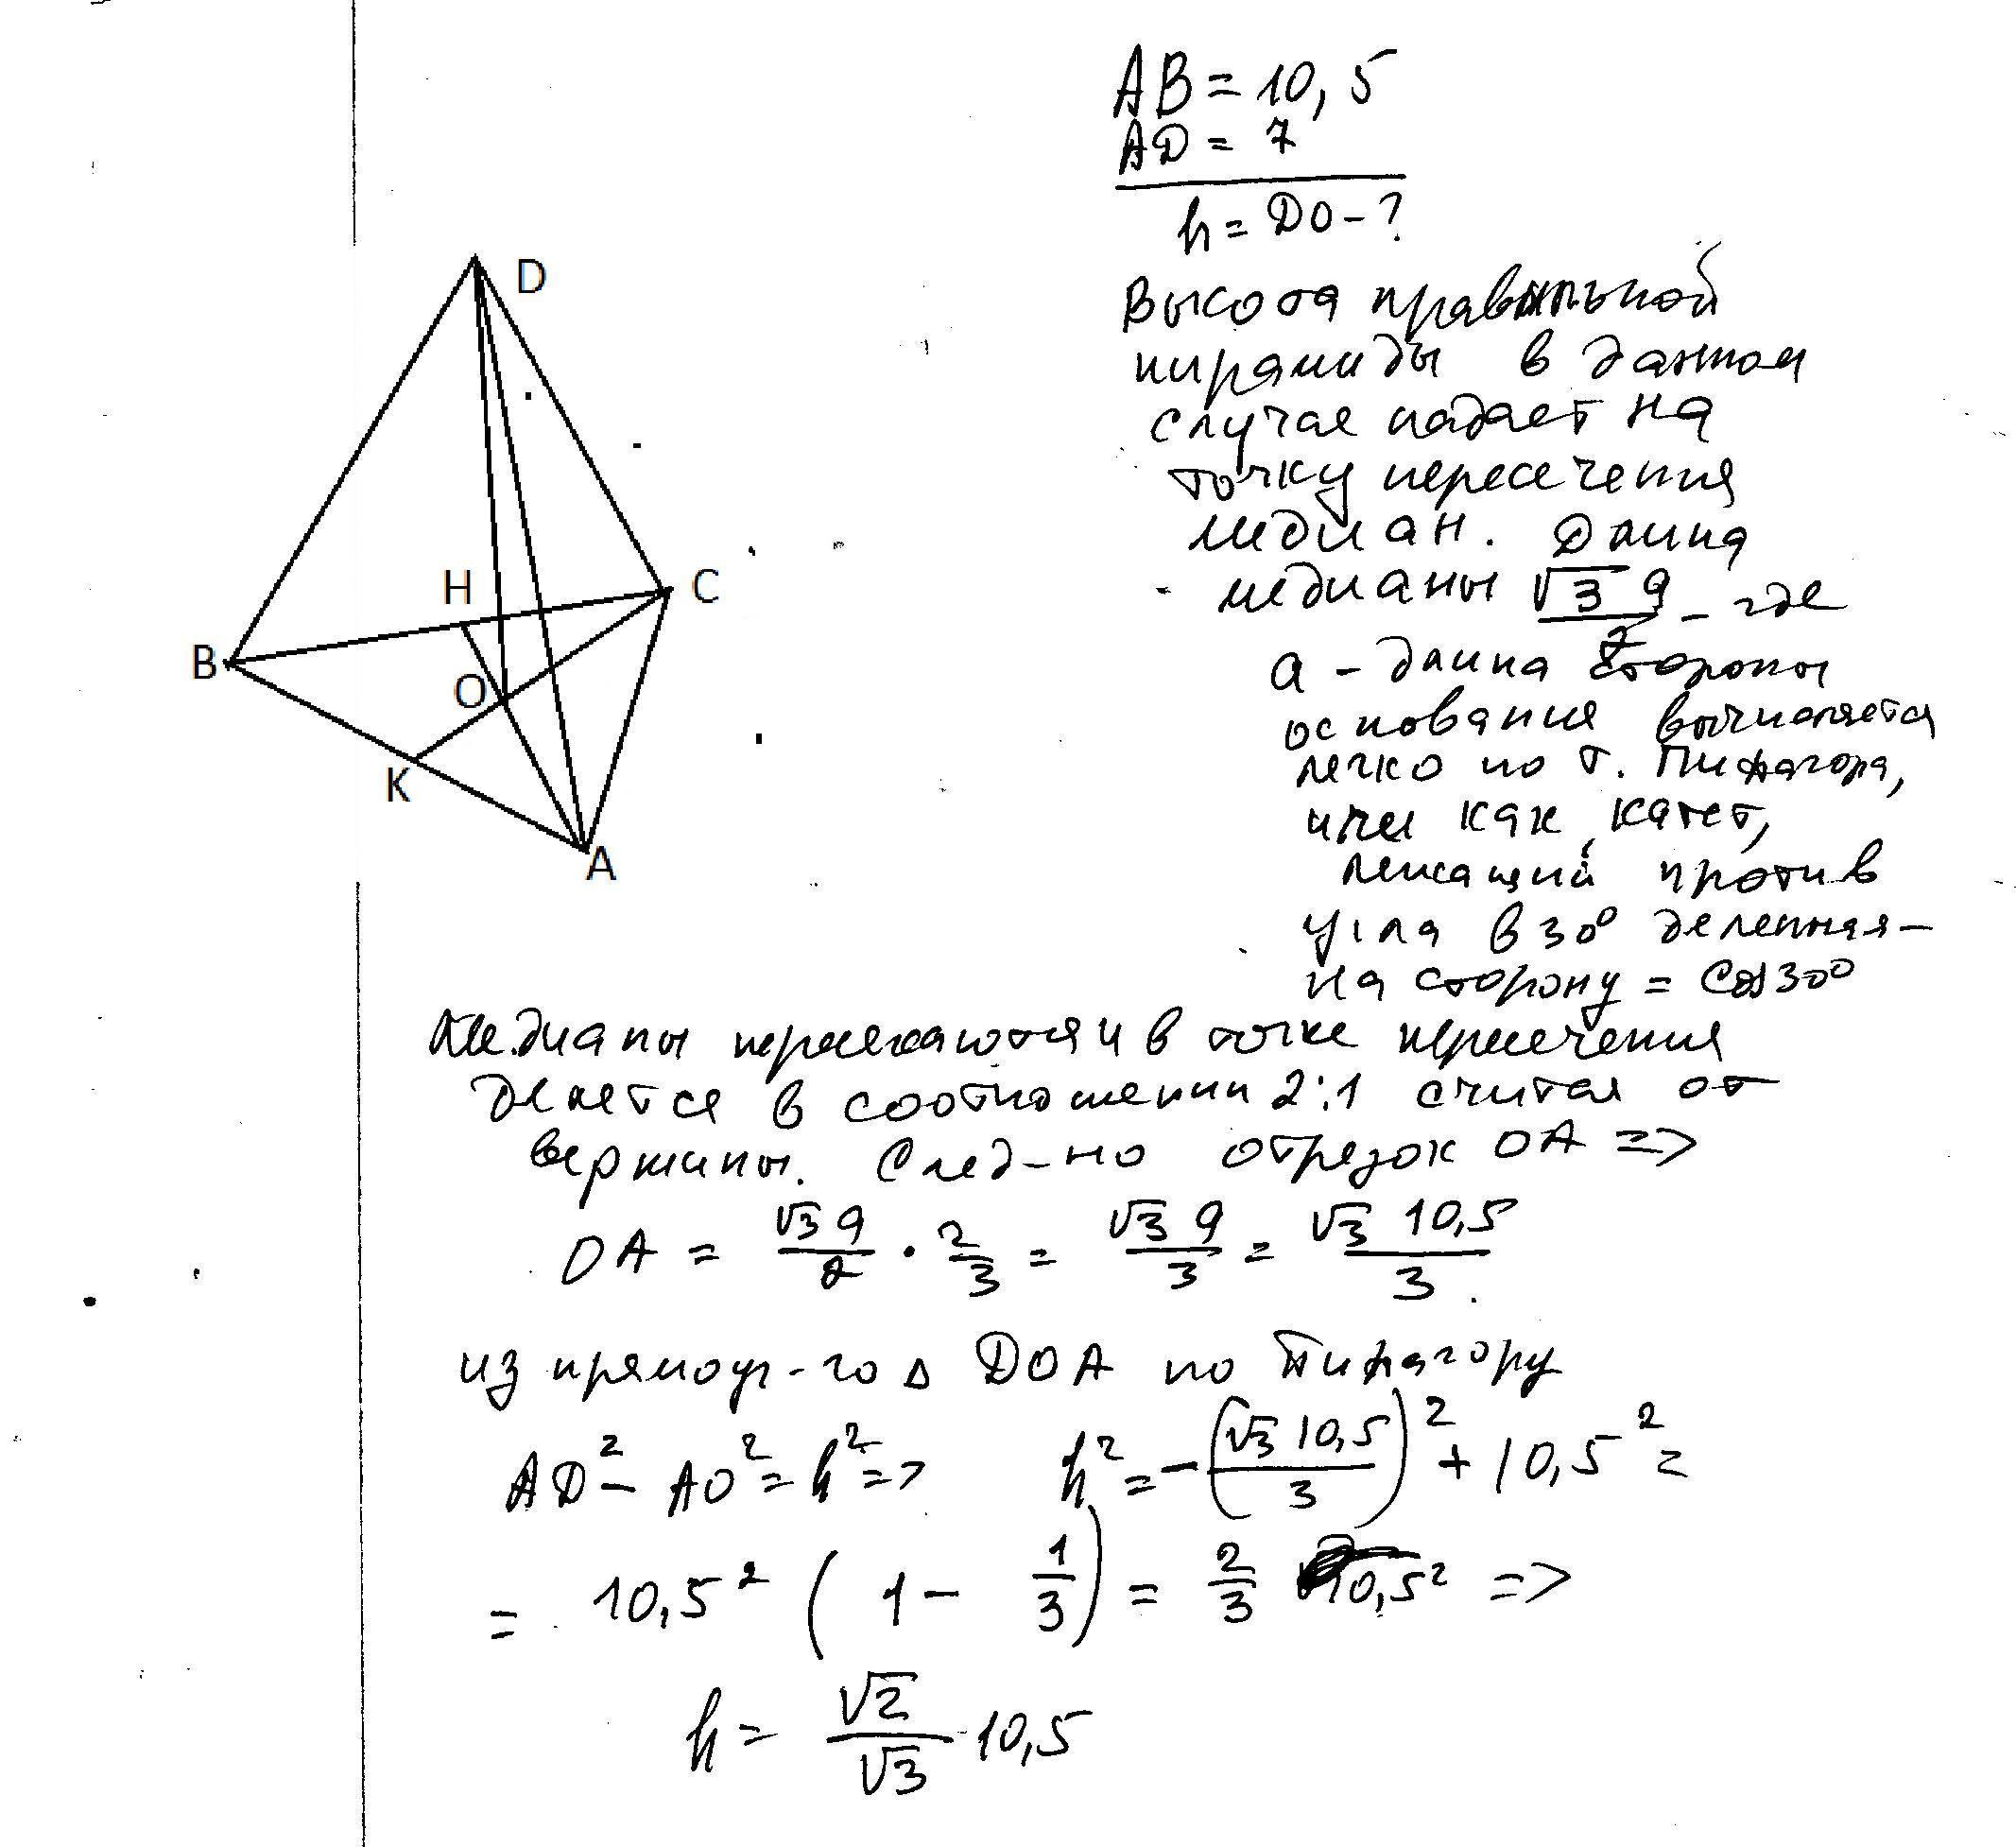 AB = 10,5
AD = 7
h = DO - ?
Высота правильной
пирамиды в данном
случае падает на
точку пересечения
медиан. Длина
медианы √3 a / 2 - где
a - длина стороны
основания вычисляется
легко по т. Пифагора,
или как катет,
лежащий против
угла в 30° деленная -
на сторону = cos 30°
D
H
C
B
O
K
A
Медианы пересекаются и в точке пересечения
делятся в соотношении 2:1 считая от
вершины. След-но отрезок OA =>
OA = √3 a / 2 · 2/3 = √3 a / 3 = √3 10,5 / 3
из прямоуг-го Δ DOA по Пифагору
AD² - AO² = h² => h² = -(√3 10,5 / 3)² + 10,5² =
= 10,5² (1 - 1/3) = 2/3 10,5² =>
h = √2/√3 10,5